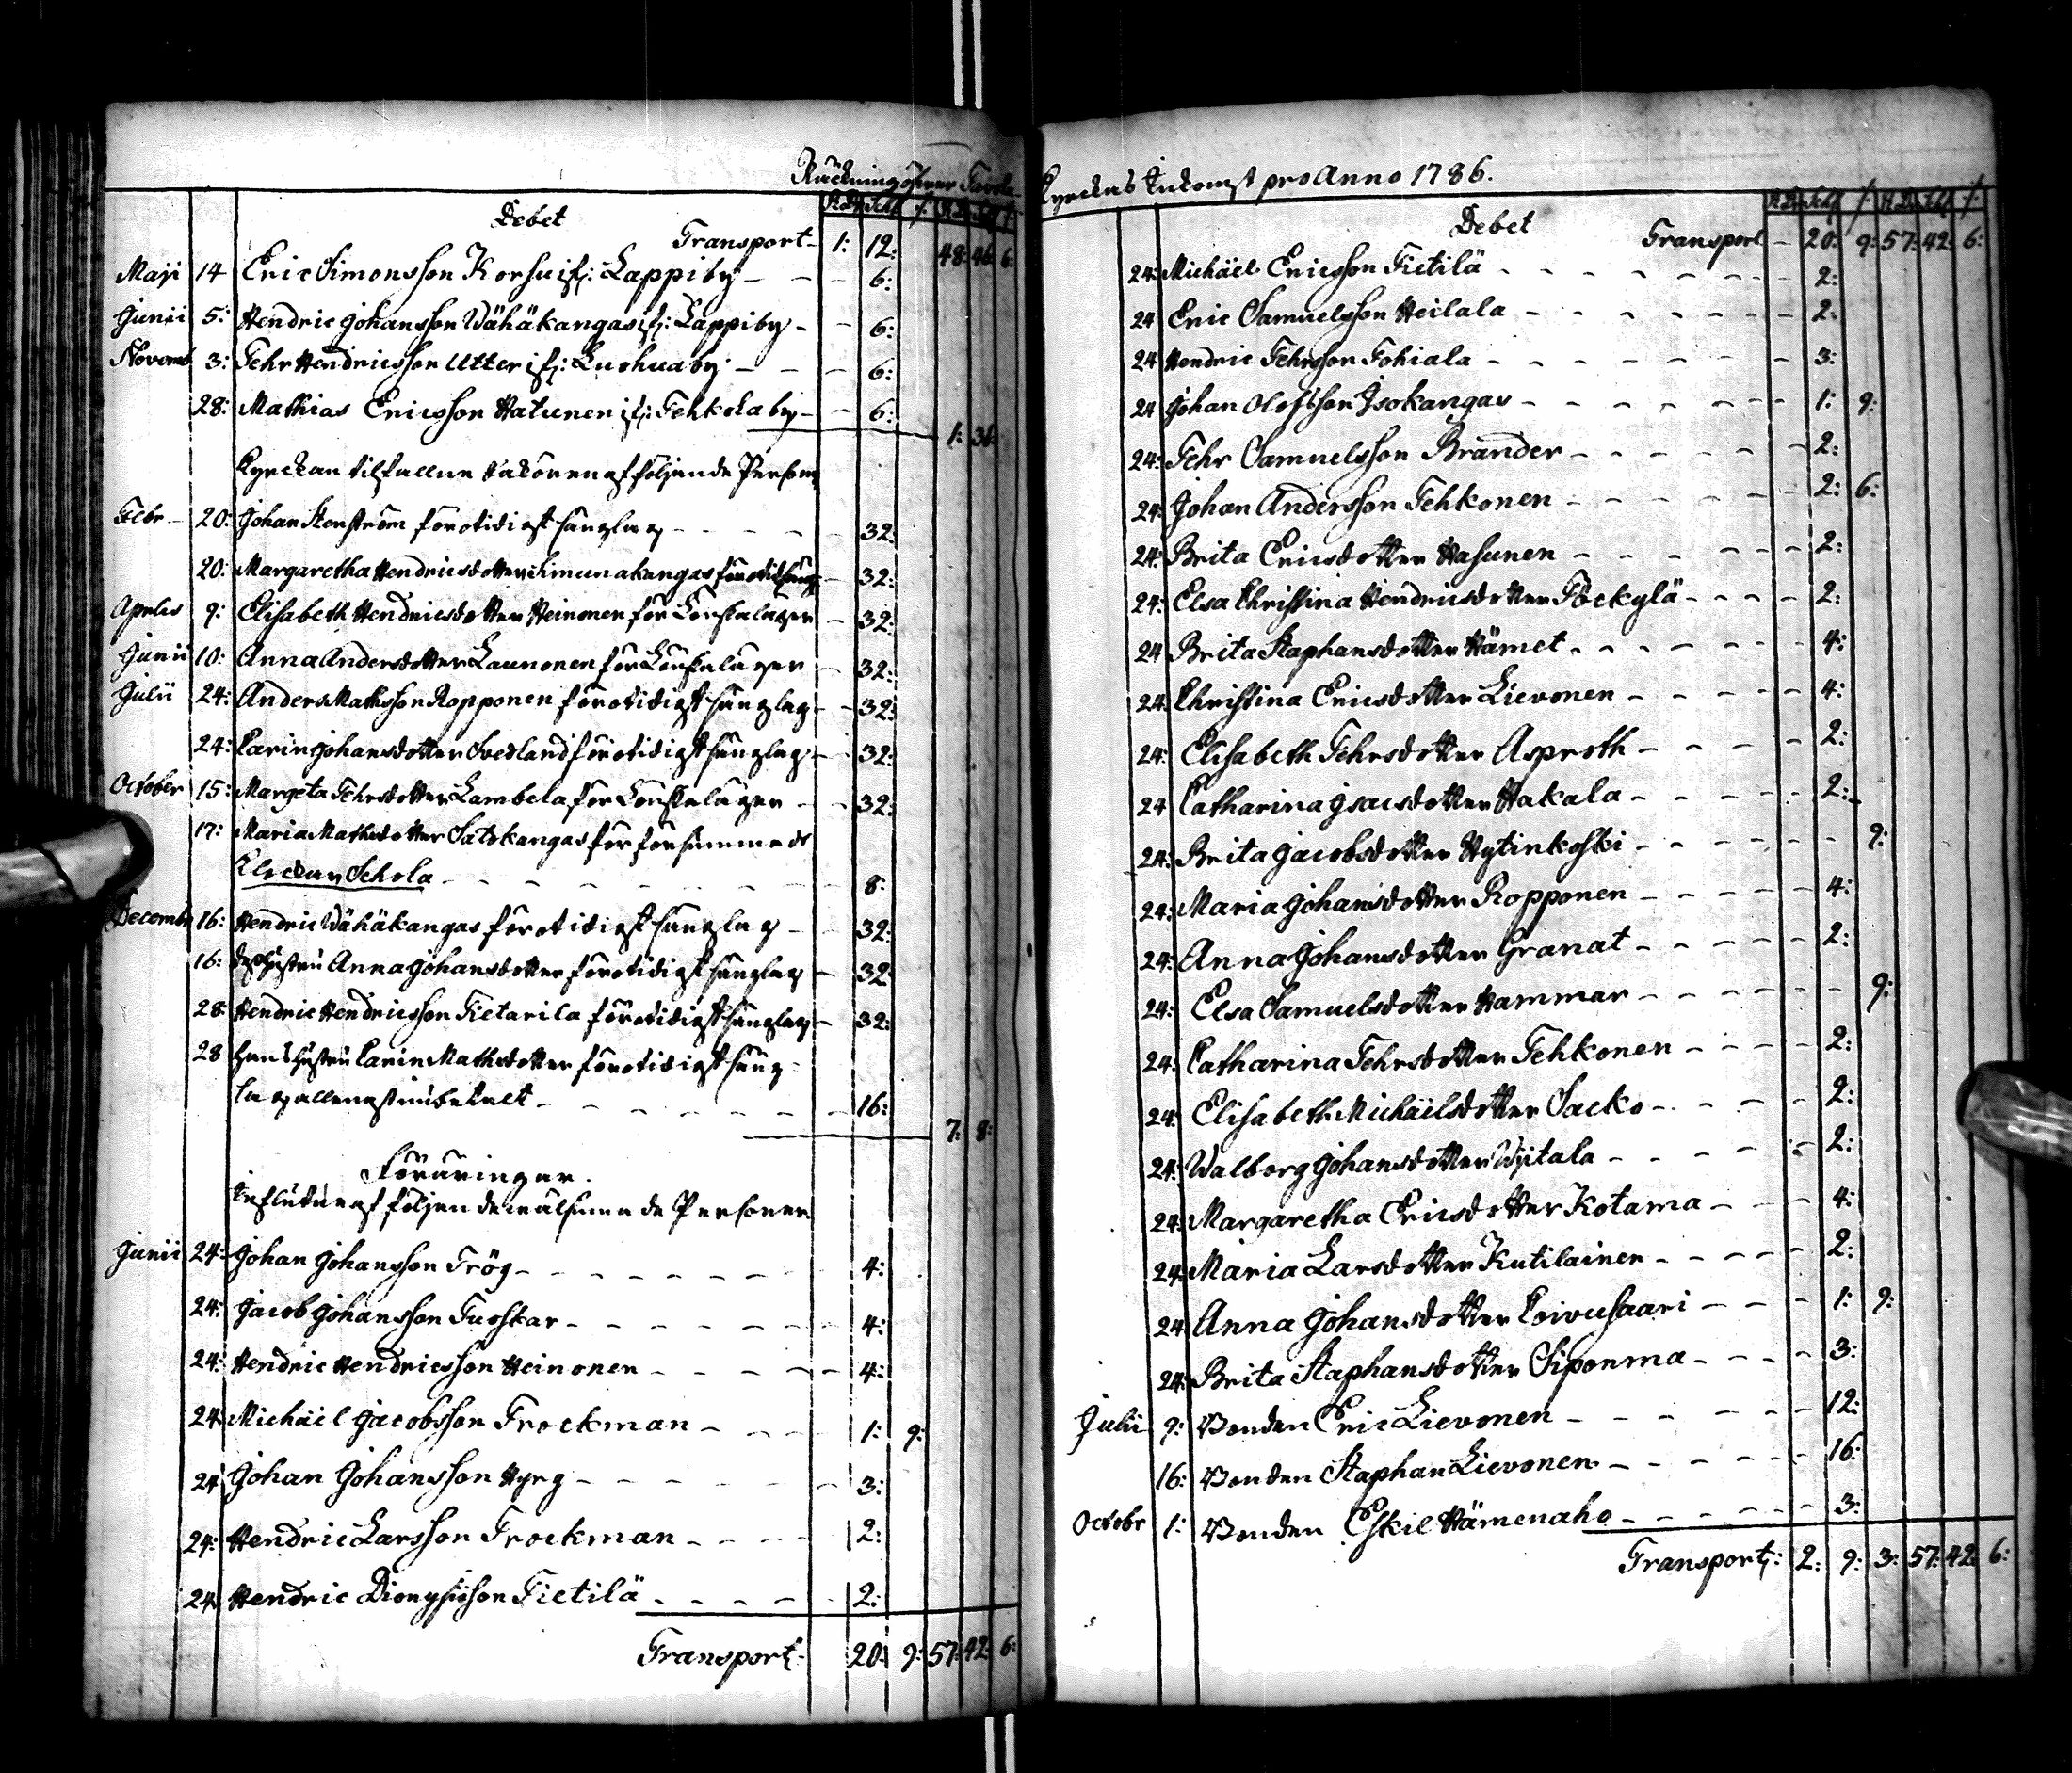 Räckning öfwer Tavola
Debet
R:Dr Sch: /: R:Dr Sch /:
Transport - 1: 12: 48: 46: 6:
Maji 14 Eric Simonsson Korhu if: Lappi by - - - 6:
Junii 5: Hendric Johansson Wähäkangas if: Lappiby - - 6:
Novemb 3: Pehr Hendricsson Utter if: Luohua by - - - 6:
28: Mathias Ericsson Hatunen if: Pehkola by - - 6:
1: 36:
Kyrckan tilfallne sakören af följande Person:
Febr - 20: Johan Stenström för otidigt sänglag - - - - - 32:
20: Margaretha Hendricsdotter för otidt säng: - 32:
Aprlis 9: Elisabeth Hendricsdotter Heinonen för Lönskaläger - 32:
Junii 10: Anna Andersdotter Launonen för Lönskaläger - 32:
Julii 24: Anders Mathsson Ropponen för otidigt sänglag - - 32:
24: Carin Johansdotter Svedland för otidigt sänglag - 32:
October 15: Margeta Pehrsdotter Lambela för Lönskaläger - - 32:
17: Maria Mathsdotter Satokangas för försummad
Klockar Schola - - - - - - - - - 8:
Decembr 16: Hendric Wähäkangas för otidigt sänglag - - 32:
16: dess Hustru Anna Johansdotter för otidigt sänglag - 32
28: Hendric Hendricsson Pietarila för otidigt sänglag - 32:
28 Hans Hustru Carin Mathsdotter för otidigt säng-
lag allenast inbetalt - - - - - - - - 16:
7: 8:
Föräringar.
Influtne af följande wälsinnade Personer
Junii 24: Johan Johansson Frög - - - - - - - - 4:
24: Jacob Johansson Tuoskar - - - - - - - 4:
24: Hendric Hendricsson Heinonen - - - - - 4:
24: Michäel Jacobsson Frockman - - - - 1: 9:
24 Johan Johansson Hyrg - - - - - - - 3:
24: Hendric Larsson Frockman - - - - - 2:
24 Hendric Dionysisson Pietilä - - - - - 2:
Transport: 20: 9: 57: 42: 6:
Kyrckas Inkomst pro Anno 1786.
R:Dr Sch /: R:Dr Sch /:
Debet
Transport - 20: 9: 57: 42: 6:
24: Michäel Ericsson Pietilä - - - - - - - - 2:
24 Eric Samuelsson Heilala - - - - - - - 2:
24 Hendric Pehrsson Pohiala - - - - - - - 3:
24 Johan Olofsson Isokangas - - - - - - - 1: 9:
24: Pehr Samuelsson Brander - - - - - - 2:
24: Johan Andersson Pehkonen - - - - - - 2: 6:
24: Brita Ericsdotter Hasunen - - - - - - 2:
24: Elsa Christina Hendricsdotter Pöckylä - - - - 2:
24 Brita Staphansdotter Hämet - - - - - - 4:
24: Christina Ericsdotter Lievonen - - - - - 4:
24: Elisabeth Pehrsdotter Asproth - - - - - 2:
24 Catharina Isacsdotter Hakala - - - - - - 2:
24: Brita Jacobsdotter Hytinkoski - - - - - - - 9:
24: Maria Johansdotter Ropponen - - - - - 4:
24: Anna Johansdotter Granat - - - - - - 2:
24: Elsa Samuelsdotter Hammar - - - - - - - 9:
24: Catharina Pehrsdotter Pehkonen - - - - - 2:
24: Elisabeth Michäelsdotter Sacko - - - - - 2:
24: Walborg Johansdotter Wijtala - - - - - 2:
24: Margaretha Ericsdotter Kotama - - - - 4:
24: Maria Larsdotter Kutilainen - - - - - 2:
24: Anna Johansdotter Coivusaari - - - - 1: 9:
24: Brita Staphansdotter Siponma - - - - 3:
Julii 9: Bonden Eric Lievonen - - - - - - 12:
16: Bonden Staphan Lievonen - - - - - 16:
Octobr 1: Bonden Eskil Hämenaho - - - - - 3:
Transport: 2: 9: 3: 57: 42: 6: